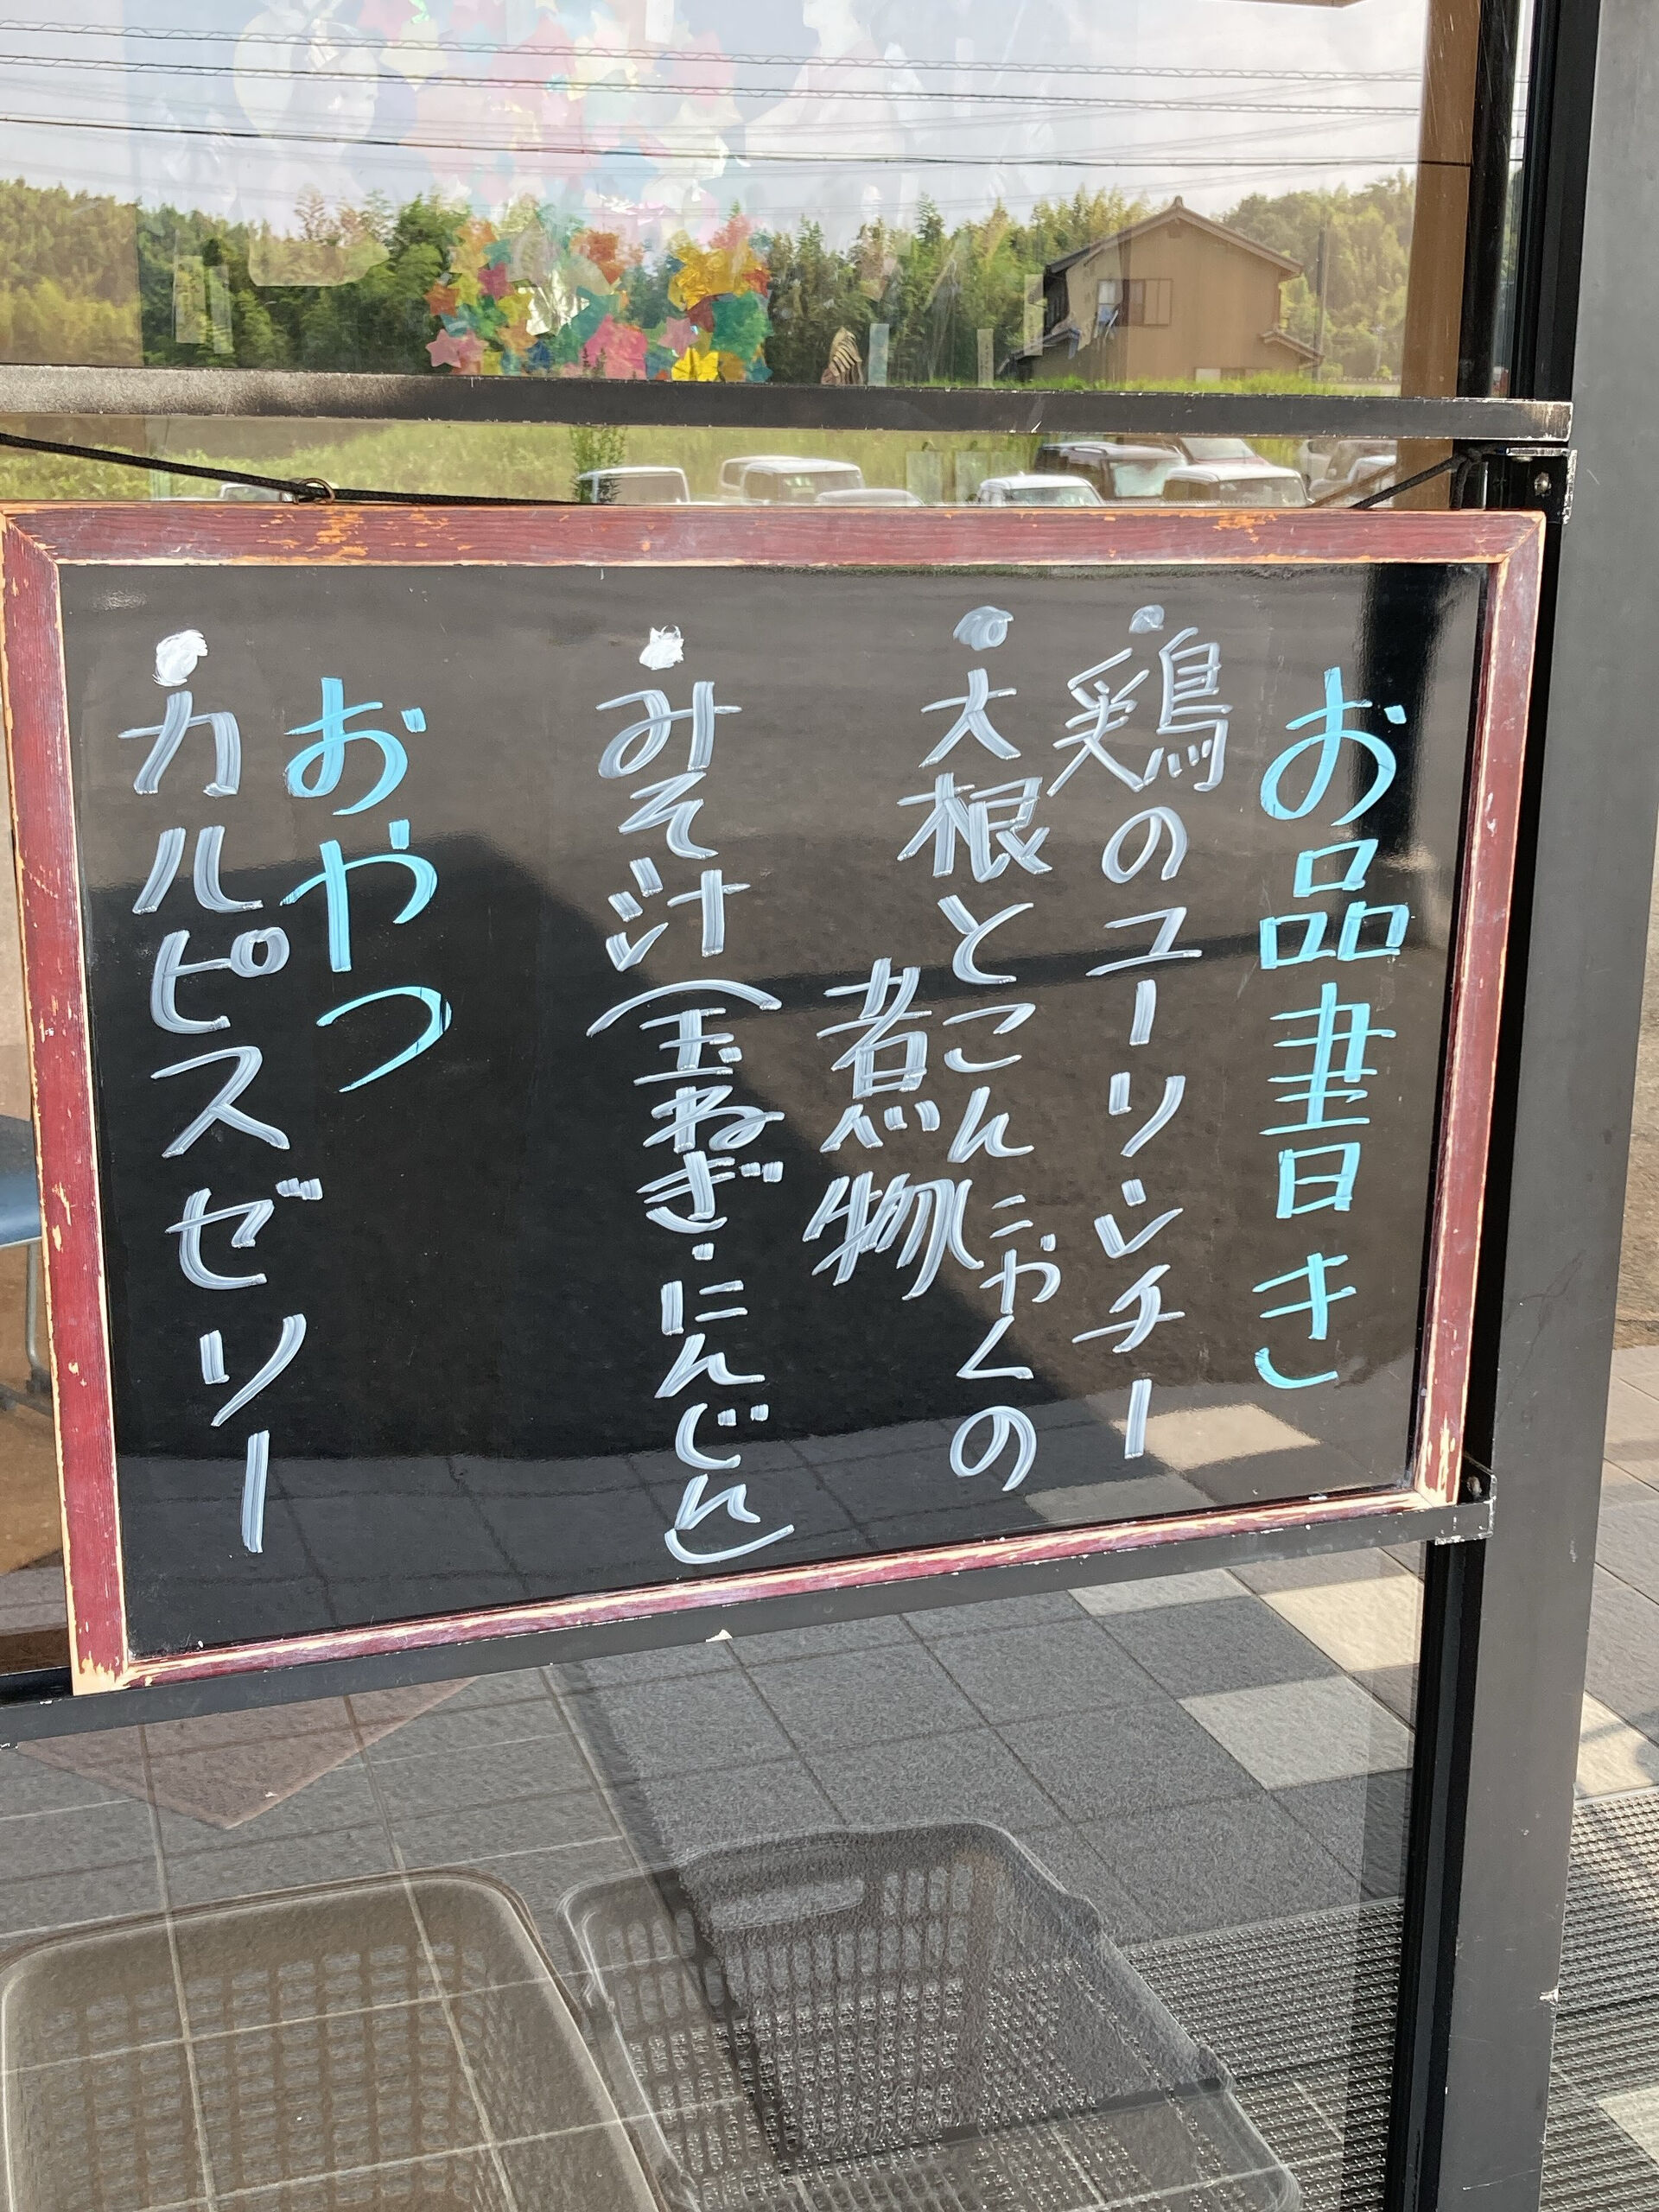 お品書き
・鶏のユーリンチー
・大根とこんにゃくの
煮物
・みそ汁(玉ねぎ・にんじん)
おやつ
・カルピスゼリー